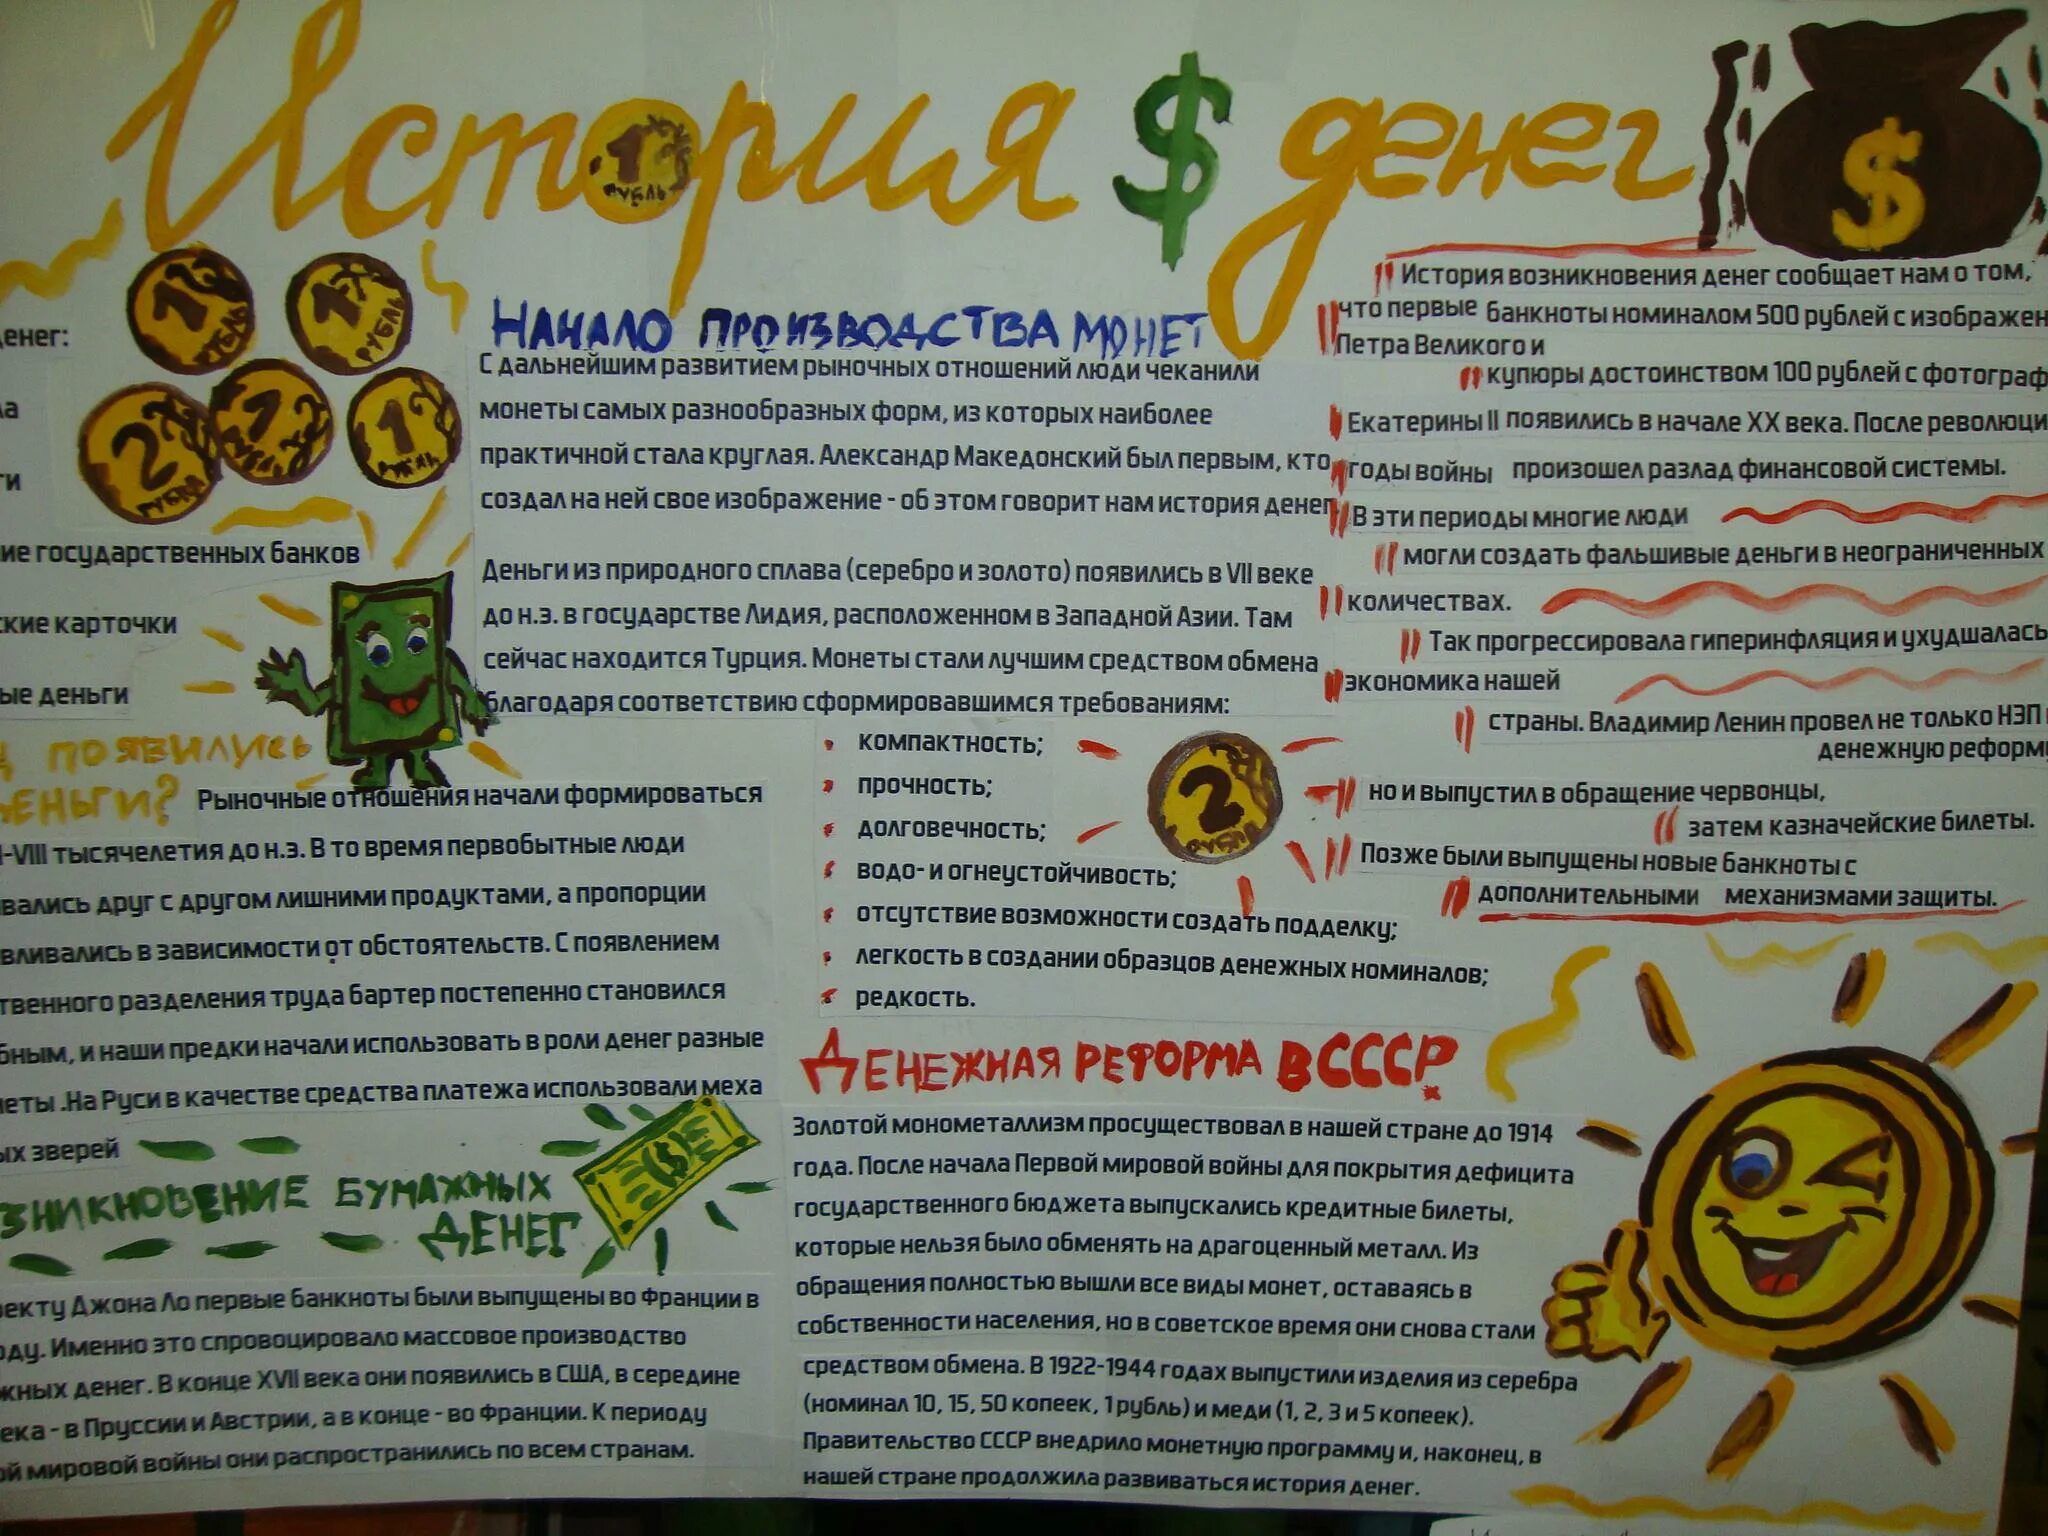 История $ денег
1 РУБЛЬ
$
1 РУБЛЬ
1 РУБЛЬ
2 РУБЛЯ
1 РУБЛЬ
денег:
ие государственных банков
ские карточки
ые деньги
ПОЯВИЛИСЬ
ДЕНЬГИ?
Рыночные отношения начали формироваться
-VIII тысячелетия до н.э. В то время первобытные люди
вались друг с другом лишними продуктами, а пропорции
вливались в зависимости от обстоятельств. С появлением
ственного разделения труда бартер постепенно становился
бным, и наши предки начали использовать в роли денег разные
еты .На Руси в качестве средства платежа использовали меха
ых зверей
ЗНИКНОВЕНИЕ БУМАЖНЫХ
ДЕНЕГ
$
екту Джона Ло первые банкноты были выпущены во Франции в
оду. Именно это спровоцировало массовое производство
жных денег. В конце XVII века они появились в США, в середине
ека - в Пруссии и Австрии, а в конце - во Франции. К периоду
ой мировой войны они распространились по всем странам.
НАЧАЛО ПРОИЗВОДСТВА МОНЕТ
С дальнейшим развитием рыночных отношений люди чеканили
монеты самых разнообразных форм, из которых наиболее
практичной стала круглая. Александр Македонский был первым, кто
создал на ней свое изображение - об этом говорит нам история денег
Деньги из природного сплава (серебро и золото) появились в VII веке
до н.э. в государстве Лидия, расположенном в Западной Азии. Там
сейчас находится Турция. Монеты стали лучшим средством обмена
благодаря соответствию сформировавшимся требованиям:
компактность;
прочность;
долговечность;
водо- и огнеустойчивость;
отсутствие возможности создать подделку;
легкость в создании образцов денежных номиналов;
редкость.
2 РУБЛЯ
ДЕНЕЖНАЯ РЕФОРМА В СССР
Золотой монометаллизм просуществовал в нашей стране до 1914
года. После начала Первой мировой войны для покрытия дефицита
государственного бюджета выпускались кредитные билеты,
которые нельзя было обменять на драгоценный металл. Из
обращения полностью вышли все виды монет, оставаясь в
собственности населения, но в советское время они снова стали
средством обмена. В 1922-1944 годах выпустили изделия из серебра
(номинал 10, 15, 50 копеек, 1 рубль) и меди (1, 2, 3 и 5 копеек).
Правительство СССР внедрило монетную программу и, наконец, в
нашей стране продолжила развиваться история денег.
История возникновения денег сообщает нам о том,
что первые банкноты номиналом 500 рублей с изображен
Петра Великого и
купюры достоинством 100 рублей с фотограф
Екатерины II появились в начале XX века. После революци
годы войны произошел разлад финансовой системы.
В эти периоды многие люди
могли создать фальшивые деньги в неограниченных
количествах.
Так прогрессировала гиперинфляция и ухудшалась
экономика нашей
страны. Владимир Ленин провел не только НЭП
денежную реформу
но и выпустил в обращение червонцы,
затем казначейские билеты.
Позже были выпущены новые банкноты с
дополнительными механизмами защиты.